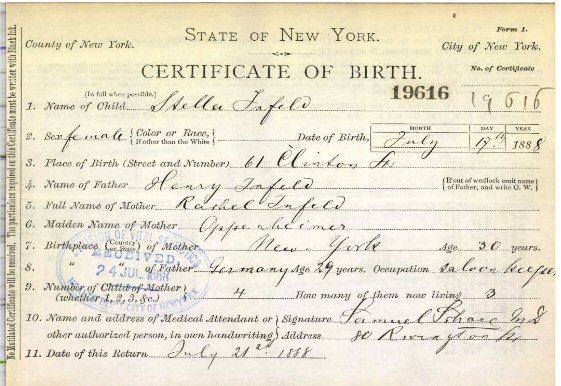 STATE OF NEW YORK.
Form 1.
County of New York.
City of New York.
CERTIFICATE OF BIRTH.
No. of Certificate
19616
19616
(In full when possible.)
1. Name of Child Stella Infeld
2. Sex female { Color or Race, If other than the White } Date of Birth, MONTH July DAY 17th YEAR 1888
3. Place of Birth (Street and Number) 61 Clinton St
4. Name of Father Henry Infeld { If out of wedlock omit name of Father, and write O. W. }
5. Full Name of Mother Rachel Infeld
6. Maiden Name of Mother Oppenheimer
7. Birthplace (Country or State) of Mother New York Age 30 years.
8. " " of Father Germany Age 29 years. Occupation saloon keeper
9. Number of Child of Mother (whether 1, 2, 3, &c.) 4 How many of them now living 3
10. Name and address of Medical Attendant or other authorized person, in own handwriting { Signature Samuel M D
Address 80 Rivington St
11. Date of this Return July 21st 1888
RECEIVED,
24 JUL 1888